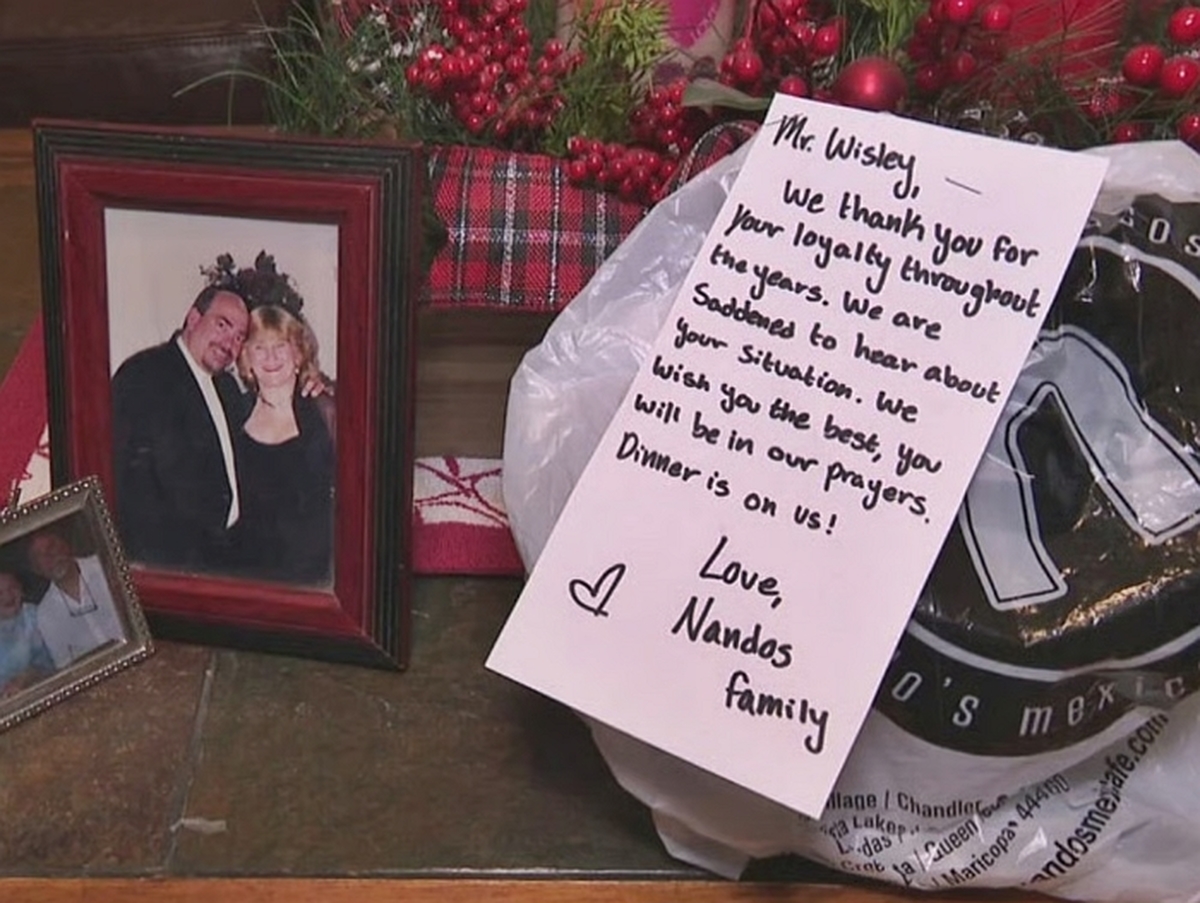 Mr. Wisley,
We thank you for
your loyalty throughout
the years. We are
Saddened to hear about
your situation. We
wish you the best, you
will be in our prayers.
Dinner is on us!
Love,
Nandos
family
o's mexic
llage / Chandler
ria Lakes
Queen
Maricopa
andosmexcafe.com